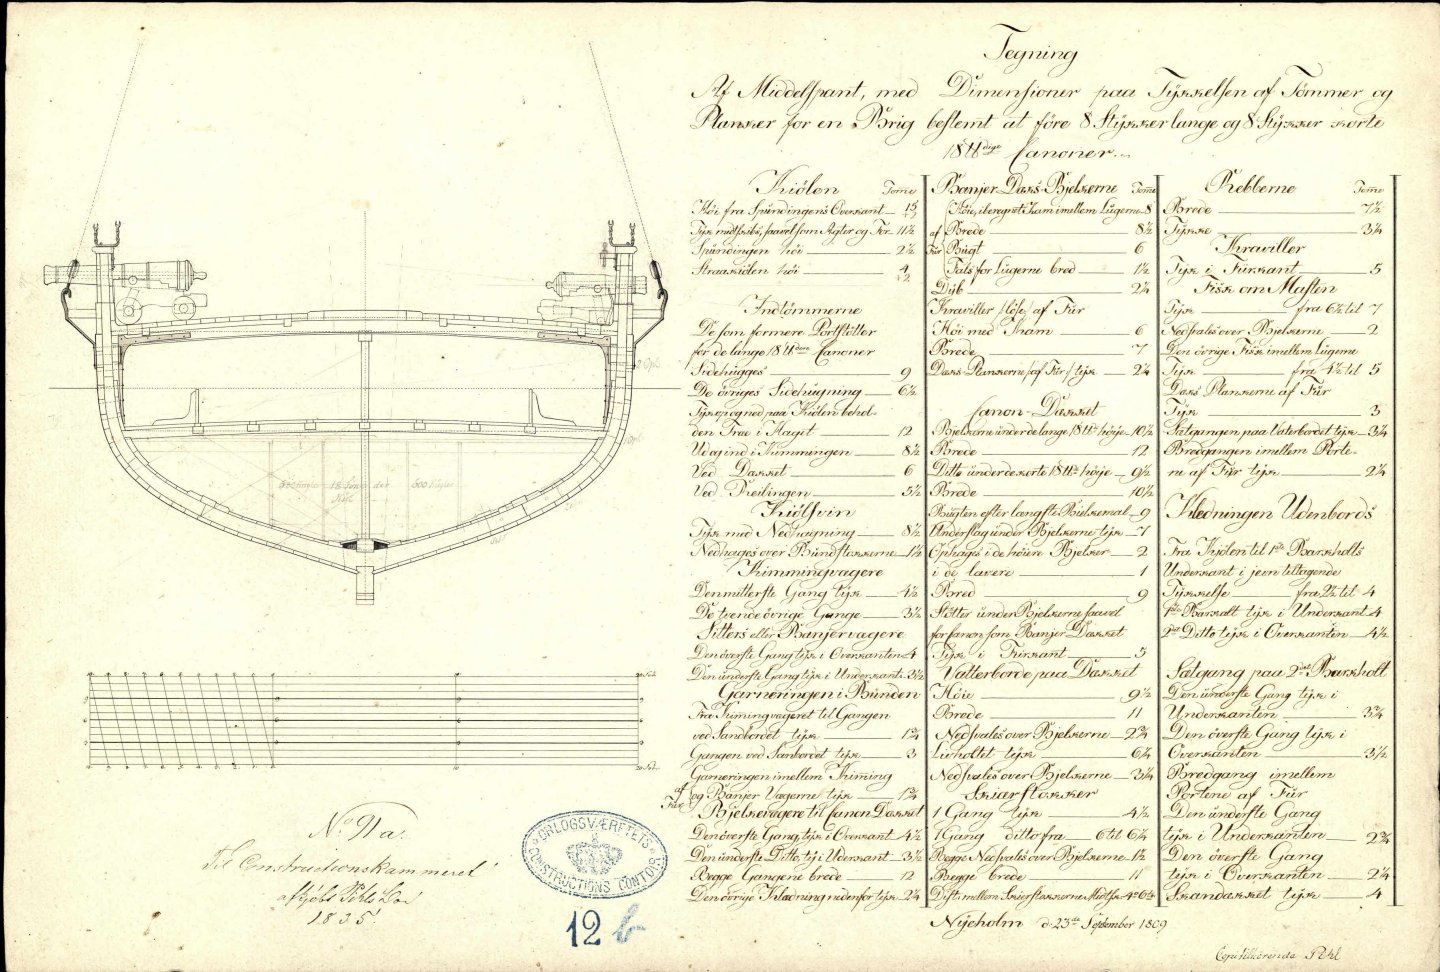 Tegning
Af Middelspant, med Dimensioner paa Tÿkkelsen af Tömmer og
Planker for en Brig bestemt at före 8 Stÿkker lange og 8 Stÿkker korte
18 ℔dige Canoner
Kiölen Tome
Höi fra Spündingens Overkant 13
Tÿk midtskibs, saavel som Agter og För 11½
Spündingen höi 2½
Straakiölen höi 4
Indtömmerne
De som formere Portstötter
for de lange 18 ℔dere Canoner
Sidehugges 9
De övriges Sidehügning 6½
Tÿk op og ned paa Kiölen behol-
den Træ i Flagit 12
Ud og ind i Kimmingen 8½
Ved Dækket 6
Ved Reilingen 5½
Kiölsvin
Tÿk med Nedhagning 8½
Nedhages over Bundstokkerne 1½
Kimmingvægere
Den mitterste Gang tÿk 4½
De tvende övrige Gange 3½
Sitters eller Banjervægere
Den överste Gang tÿk i Overkanten 4
Den ünderste Gang tÿk i Underkant 3½
Garneringen i Bunden
Fra Kimingvægeret til Gangen
ved Sandbordet tÿk 1¾
Gangen ved Sanbordet tÿk 3
Garneringen imellem Kiming
og Banjer Vægerne tÿk 1¾
af
Für
Bjelkevægere til Canon Dækket
Den överste Gang, tÿk i Overkant 4½
Den ünderste Ditto, tÿk i Uderkant 3½
Begge Gangene brede 12
Den övrige Klædning nedenfor tÿk 2¼
Banjer Dæks-Bjelkerne Tome
Höie, iberegnet Kam imellem Lügerne 8
Brede 8½
af
Für
Bügt 6
Fals for Lügerne bred 1½
Dÿb 2¼
Kraviller löse af Für
Höi med Kam 6
Brede 7
Dæks Plankerne af Für tÿk 2¼
Canon-Dækket
Bjelkerne ünder de lange 18 ℔ höije 10½
Brede 12
Ditto ünder de korte 18 ℔ höije 9½
Brede 10½
Bügten efter længste Bjelkemal 9
Underslag ünder Bjelkerne tÿk 7
Ophages i de höiere Bjelker 2
i de lavere 1
Bred 9
Stötter ünder Bjelkerne saavel
for Canon som Banjer Dækket
Tÿk i Firkant 5
Vatterborde paa Dækket
Höie 9½
Brede 11
Nedsvales over Bjelkerne 2¾
Livholtet tÿk 6¼
Nedsvales over Bjelkerne 3¼
Skiærstokker
1 Gang tÿk 4½
1 Gang ditto fra 6 til 6¼
Begge Nedsvales over Bjelkerne 1½
Begge brede 11
Dist: imellem Skierstokkerne Midtsk
Ribberne Tome
Brede 7½
Tÿkke 3¼
Kraviller
Tÿk i Fürkant 5
Fisk om Masten
Tÿk fra 6½ til 7
Nedsvales over Bjelkerne 2
Den övrige Fisk imellem Lügerne
Tÿk fra 4½ til 5
Dæks Plankerne af Für
Tÿk 3
Sætgangen paa Vaterbordet tÿk 3¼
Bredgangen imellem Porte-
ne af Für tÿk 2¼
Klædningen Udenbords
Fra Kjölen til 1ste Barkholts
Underkant i jevn tiltagende
Tÿkkelse fra 2½ til 4
1ste Barkalt tÿk i Underkant 4
2det Ditto tÿk i Overkanten 4½
Sætgang paa 2det Barkholt
Den ünderste Gang tÿk i
Underkanten 3¾
Den överste Gang tÿk i
Overkanten 3½
Bredgang imellem
Portene af Für
Den ünderste Gang
tÿk i Underkanten 2¾
Den överste Gang
tÿk i Overkanten 2¼
Skandækket tÿk 4
Nÿeholm d. 23de September 1809
No. 91 a.
Til Constructionskammeret
afkjöbt
1835
ORLOGSVÆRFTETS
CONSTRUCTIONS CONTOIR
12 b